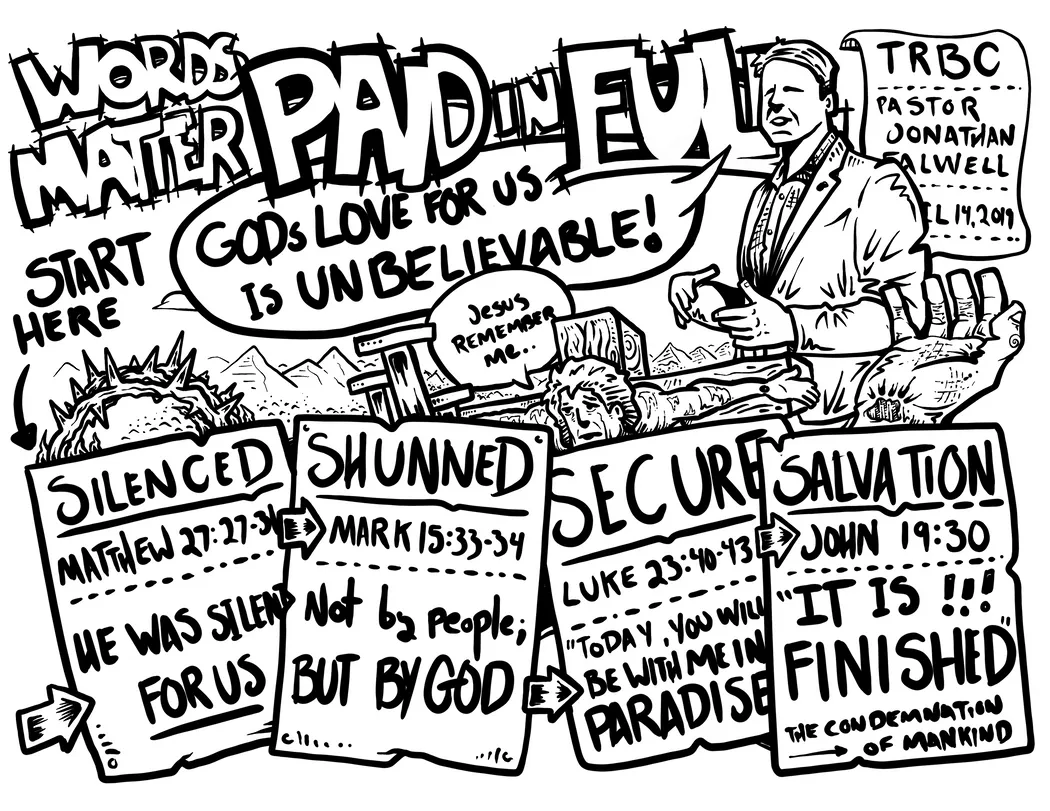 WORDS
MATTER
PAID IN FULL
TRBC
PASTOR
JONATHAN
ALWELL
IL 14, 2019
GODS LOVE FOR US
IS UNBELIEVABLE!
START
HERE
JESUS
REMEMBER
ME..
SILENCED
MATTHEW 27:27-34
HE WAS SILENT
FOR US
SHUNNED
MARK 15:33-34
Not by people;
BUT BY GOD
SECURE
LUKE 23:40-43
"TODAY, YOU WILL
BE WITH ME IN
PARADISE
SALVATION
JOHN 19:30
"IT IS !!!
FINISHED"
THE CONDEMNATION
OF MANKIND